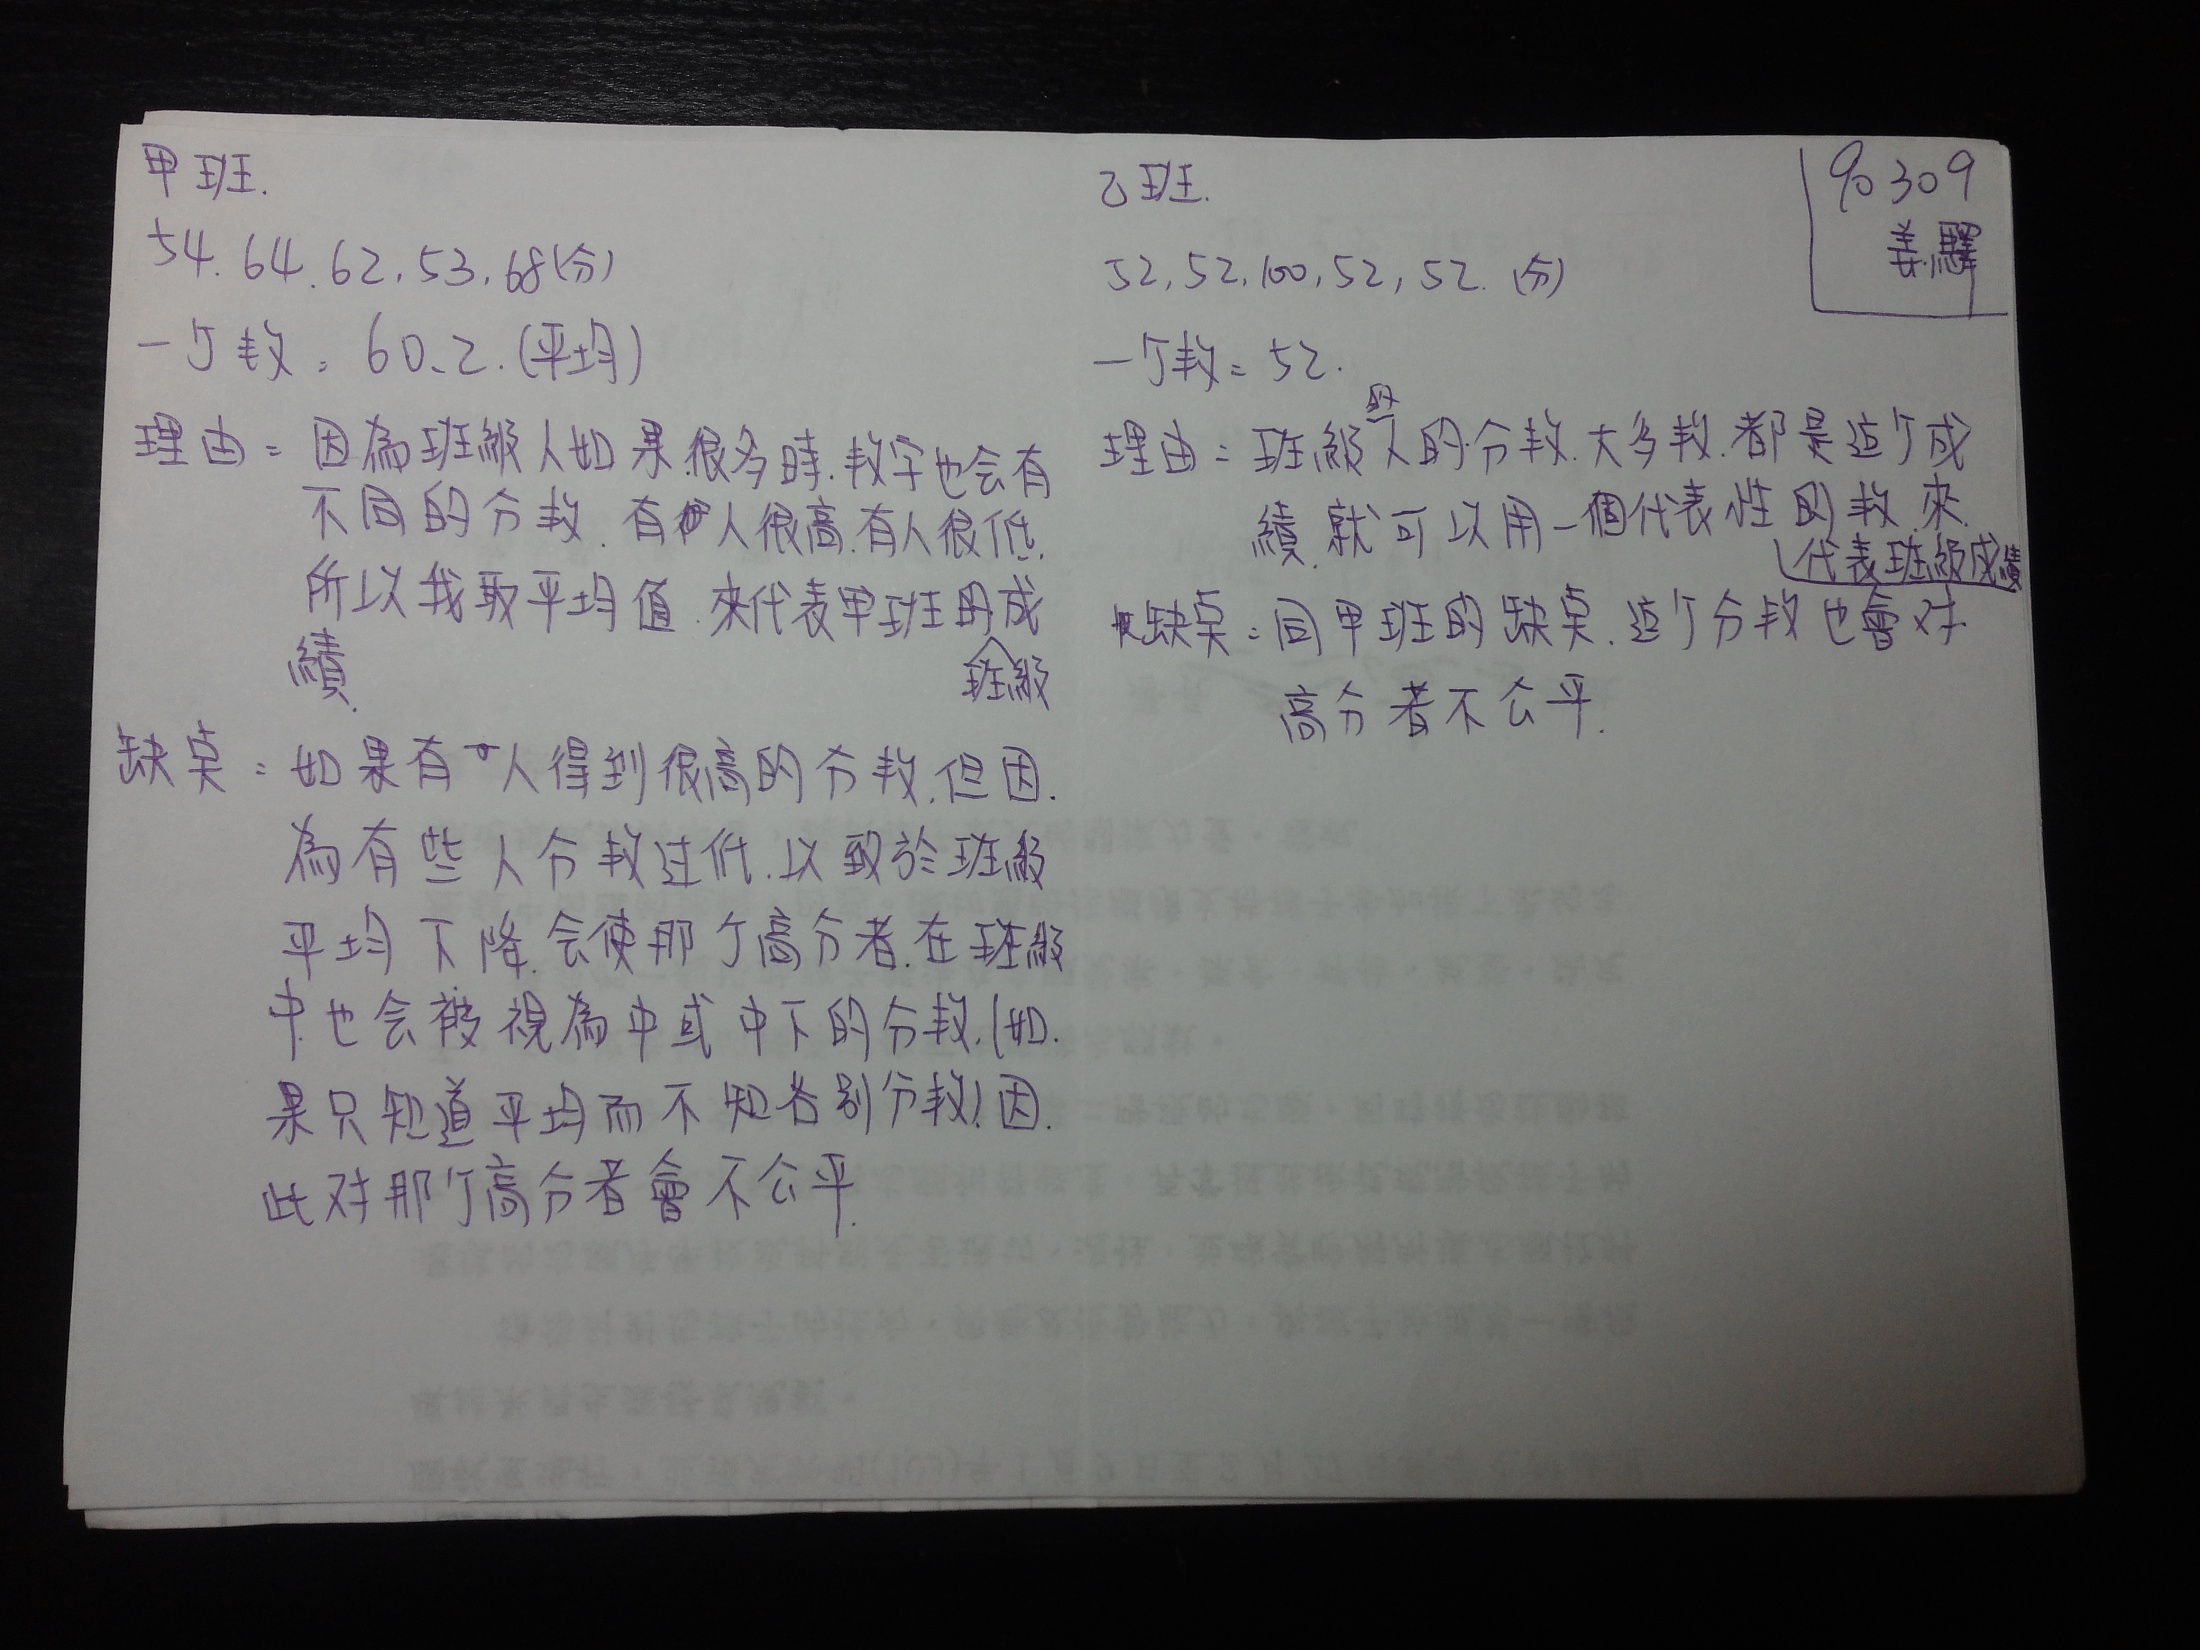 甲班.
54.64.62.53.68(分)
一个数:60.2.(平均)
理由:因為班級人如果很多時.数字也会有
不同的分数.有人很高.有人很低.
所以我取平均值.來代表甲班的班級成
績.
缺点:如果有人得到很高的分数.但因.
為有些人分数过低.以致於班級
平均下降.会使那个高分者.在班級
中也会被視為中或中下的分数.(如.
果只知道平均而不知各別分数)因.
此对那个高分者會不公平.
乙班.
52,52,100,52,52.(分)
一个数:52.
理由:班級人的分数.大多数.都是这个成
績.就可以用一個代表性的数.來.
代表班級成績
缺点:同甲班的缺点.这个分数也會对
高分者不公平.
90309
姜驛